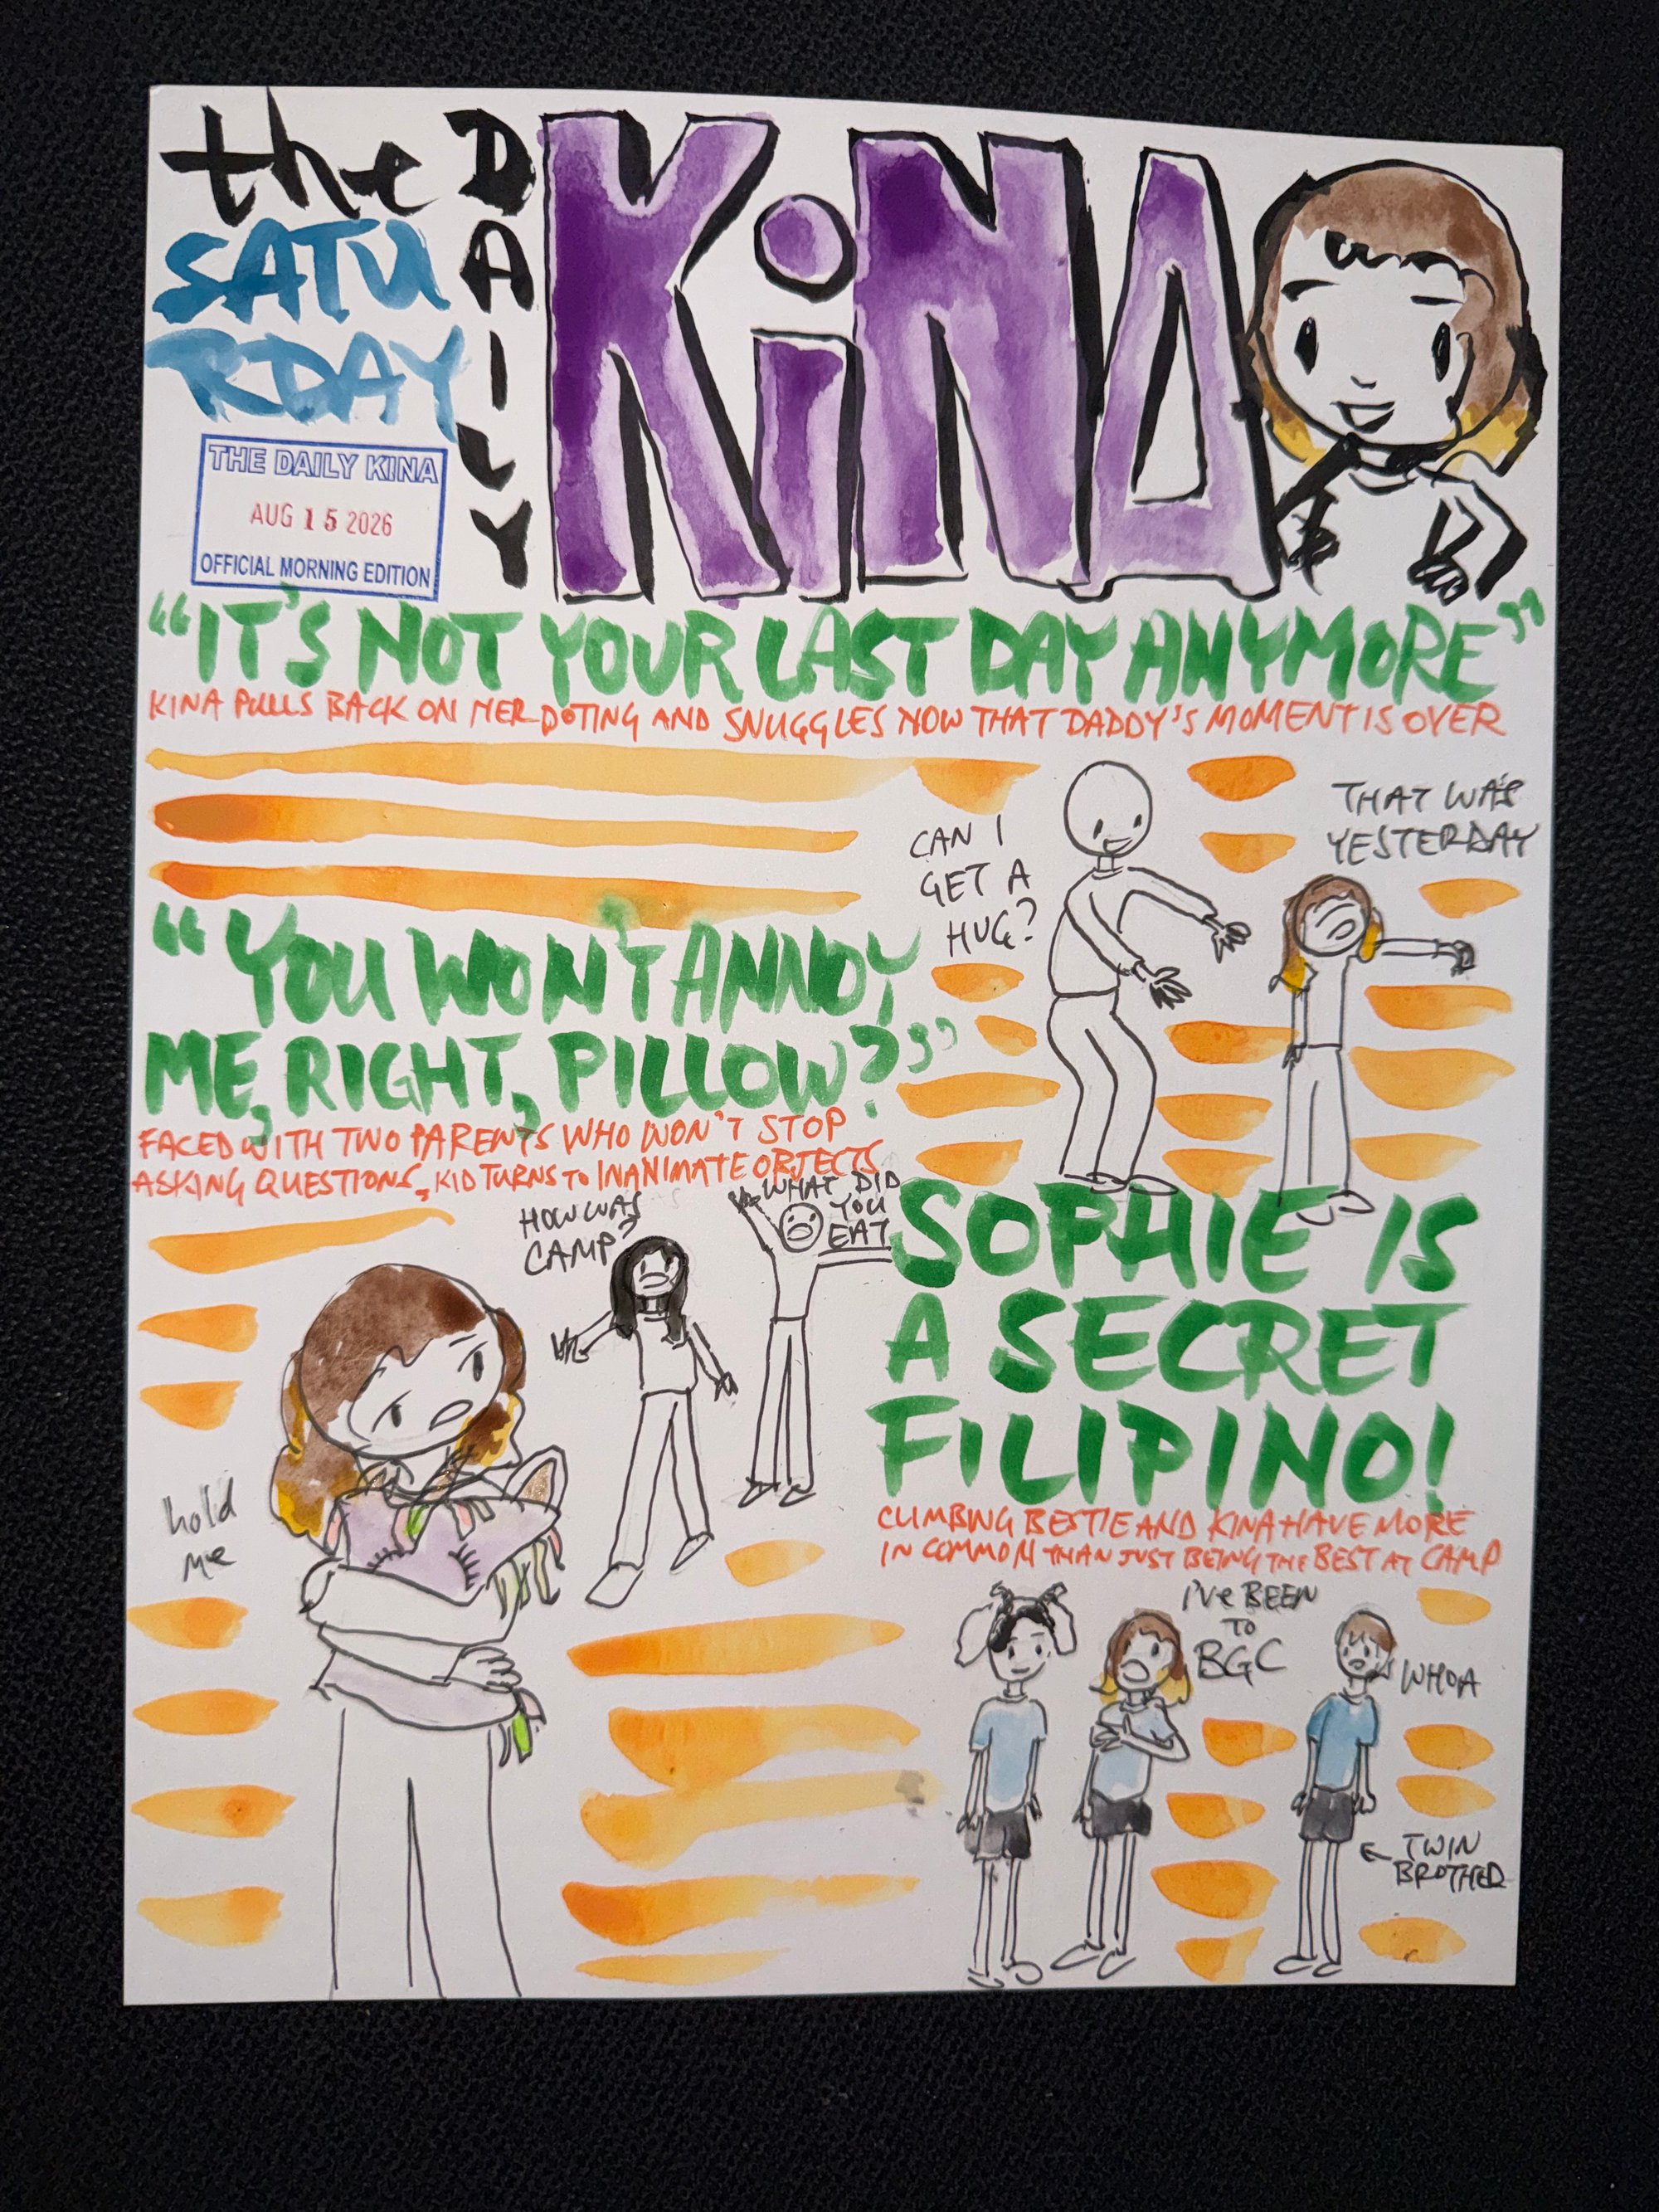 the
SATU
RDAY
DAILY
KiNA
THE DAILY KINA
AUG 15 2026
OFFICIAL MORNING EDITION
“IT'S NOT YOUR LAST DAY ANYMORE”
KINA PULLS BACK ON HER DOTING AND SNUGGLES NOW THAT DADDY'S MOMENT IS OVER
CAN I
GET A
HUG?
THAT WAS
YESTERDAY
“YOU WON'T ANNOY
ME, RIGHT, PILLOW?”
FACED WITH TWO PARENTS WHO WON'T STOP
ASKING QUESTIONS, KID TURNS TO INANIMATE OBJECTS
HOW WAS
CAMP?
WHAT DID
YOU
EAT
hold
me
SOPHIE IS
A SECRET
FILIPINO!
CLIMBING BESTIE AND KINA HAVE MORE
IN COMMON THAN JUST BEING THE BEST AT CAMP
I'VE BEEN
TO
BGC
WHOA
← TWIN
BROTHER